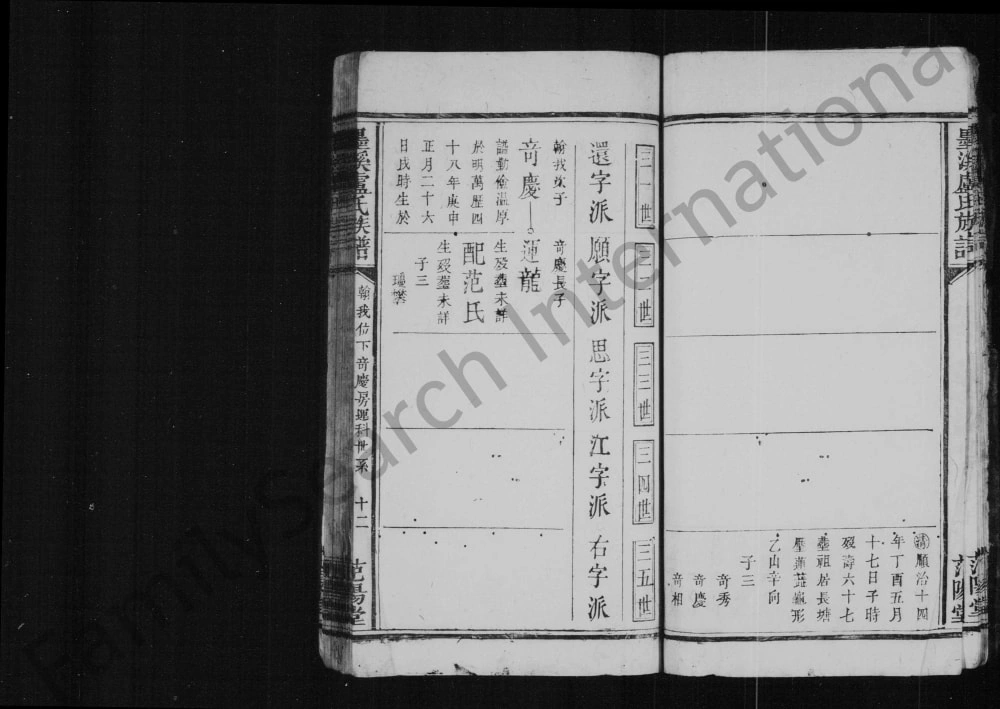 清順治十四
年丁酉五月
十七日子時
歿壽六十七
塟祖居長塘
壓蓮蕋龜形
乙山辛向
子三
竒秀
竒慶
竒相
三一世
三二世
三三世
三四世
三五世
還字派
願字派
思字派
江字派
右字派
翰我次子
竒慶
譜勤儉温厚
於明萬歷四
十八年庚申
正月二十六
日戌時生於
竒慶長子
運龍
生歿塟未詳
配范氏
生歿塟未詳
子三
墨溪盧氏族譜
翰我位下竒慶房運科世系
十二
范陽堂
FamilySearch International